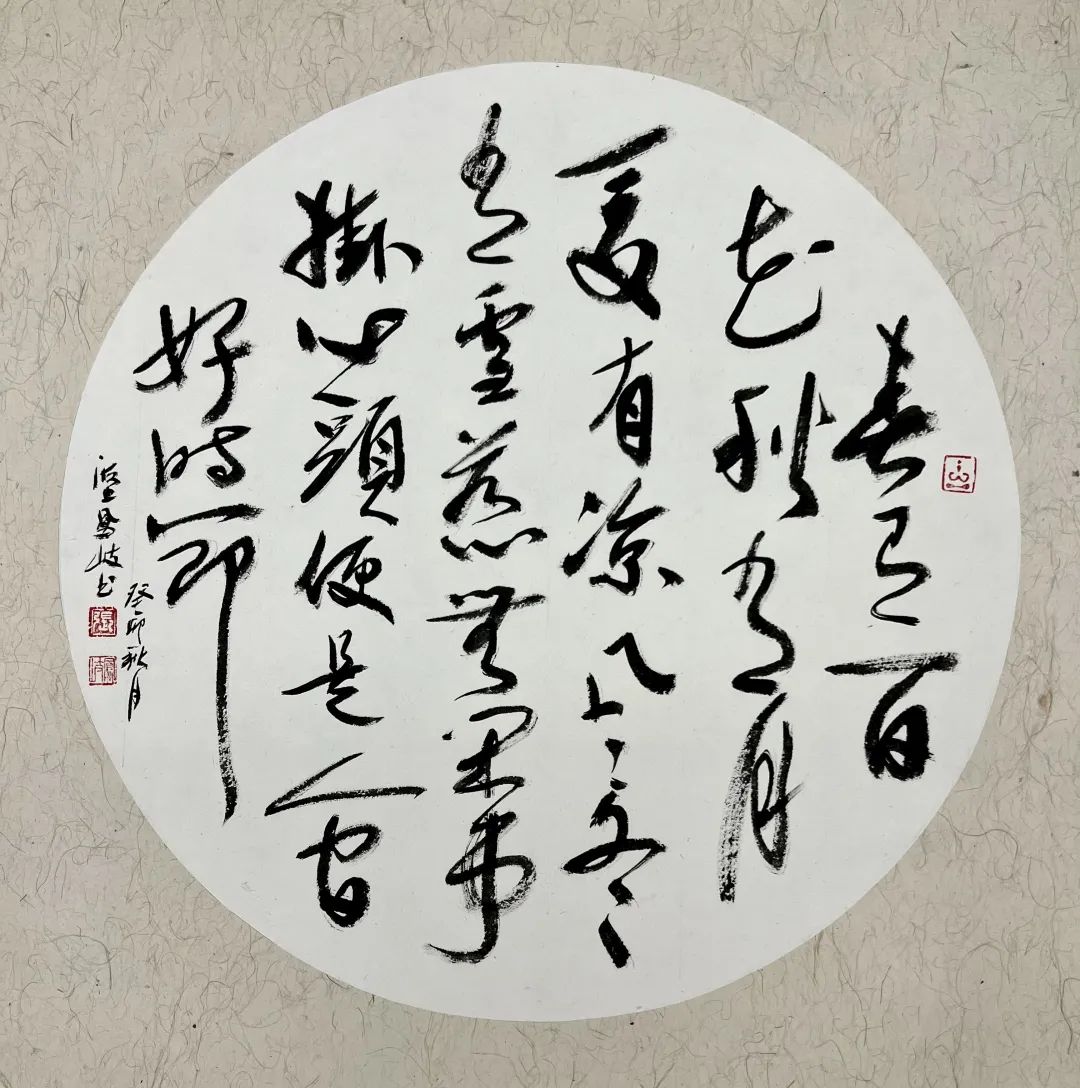 春有百
花秋有月
夏有凉风冬
有雪若無闲事
掛心頭便是人间
好时節
癸卯秋月
鳳岐书